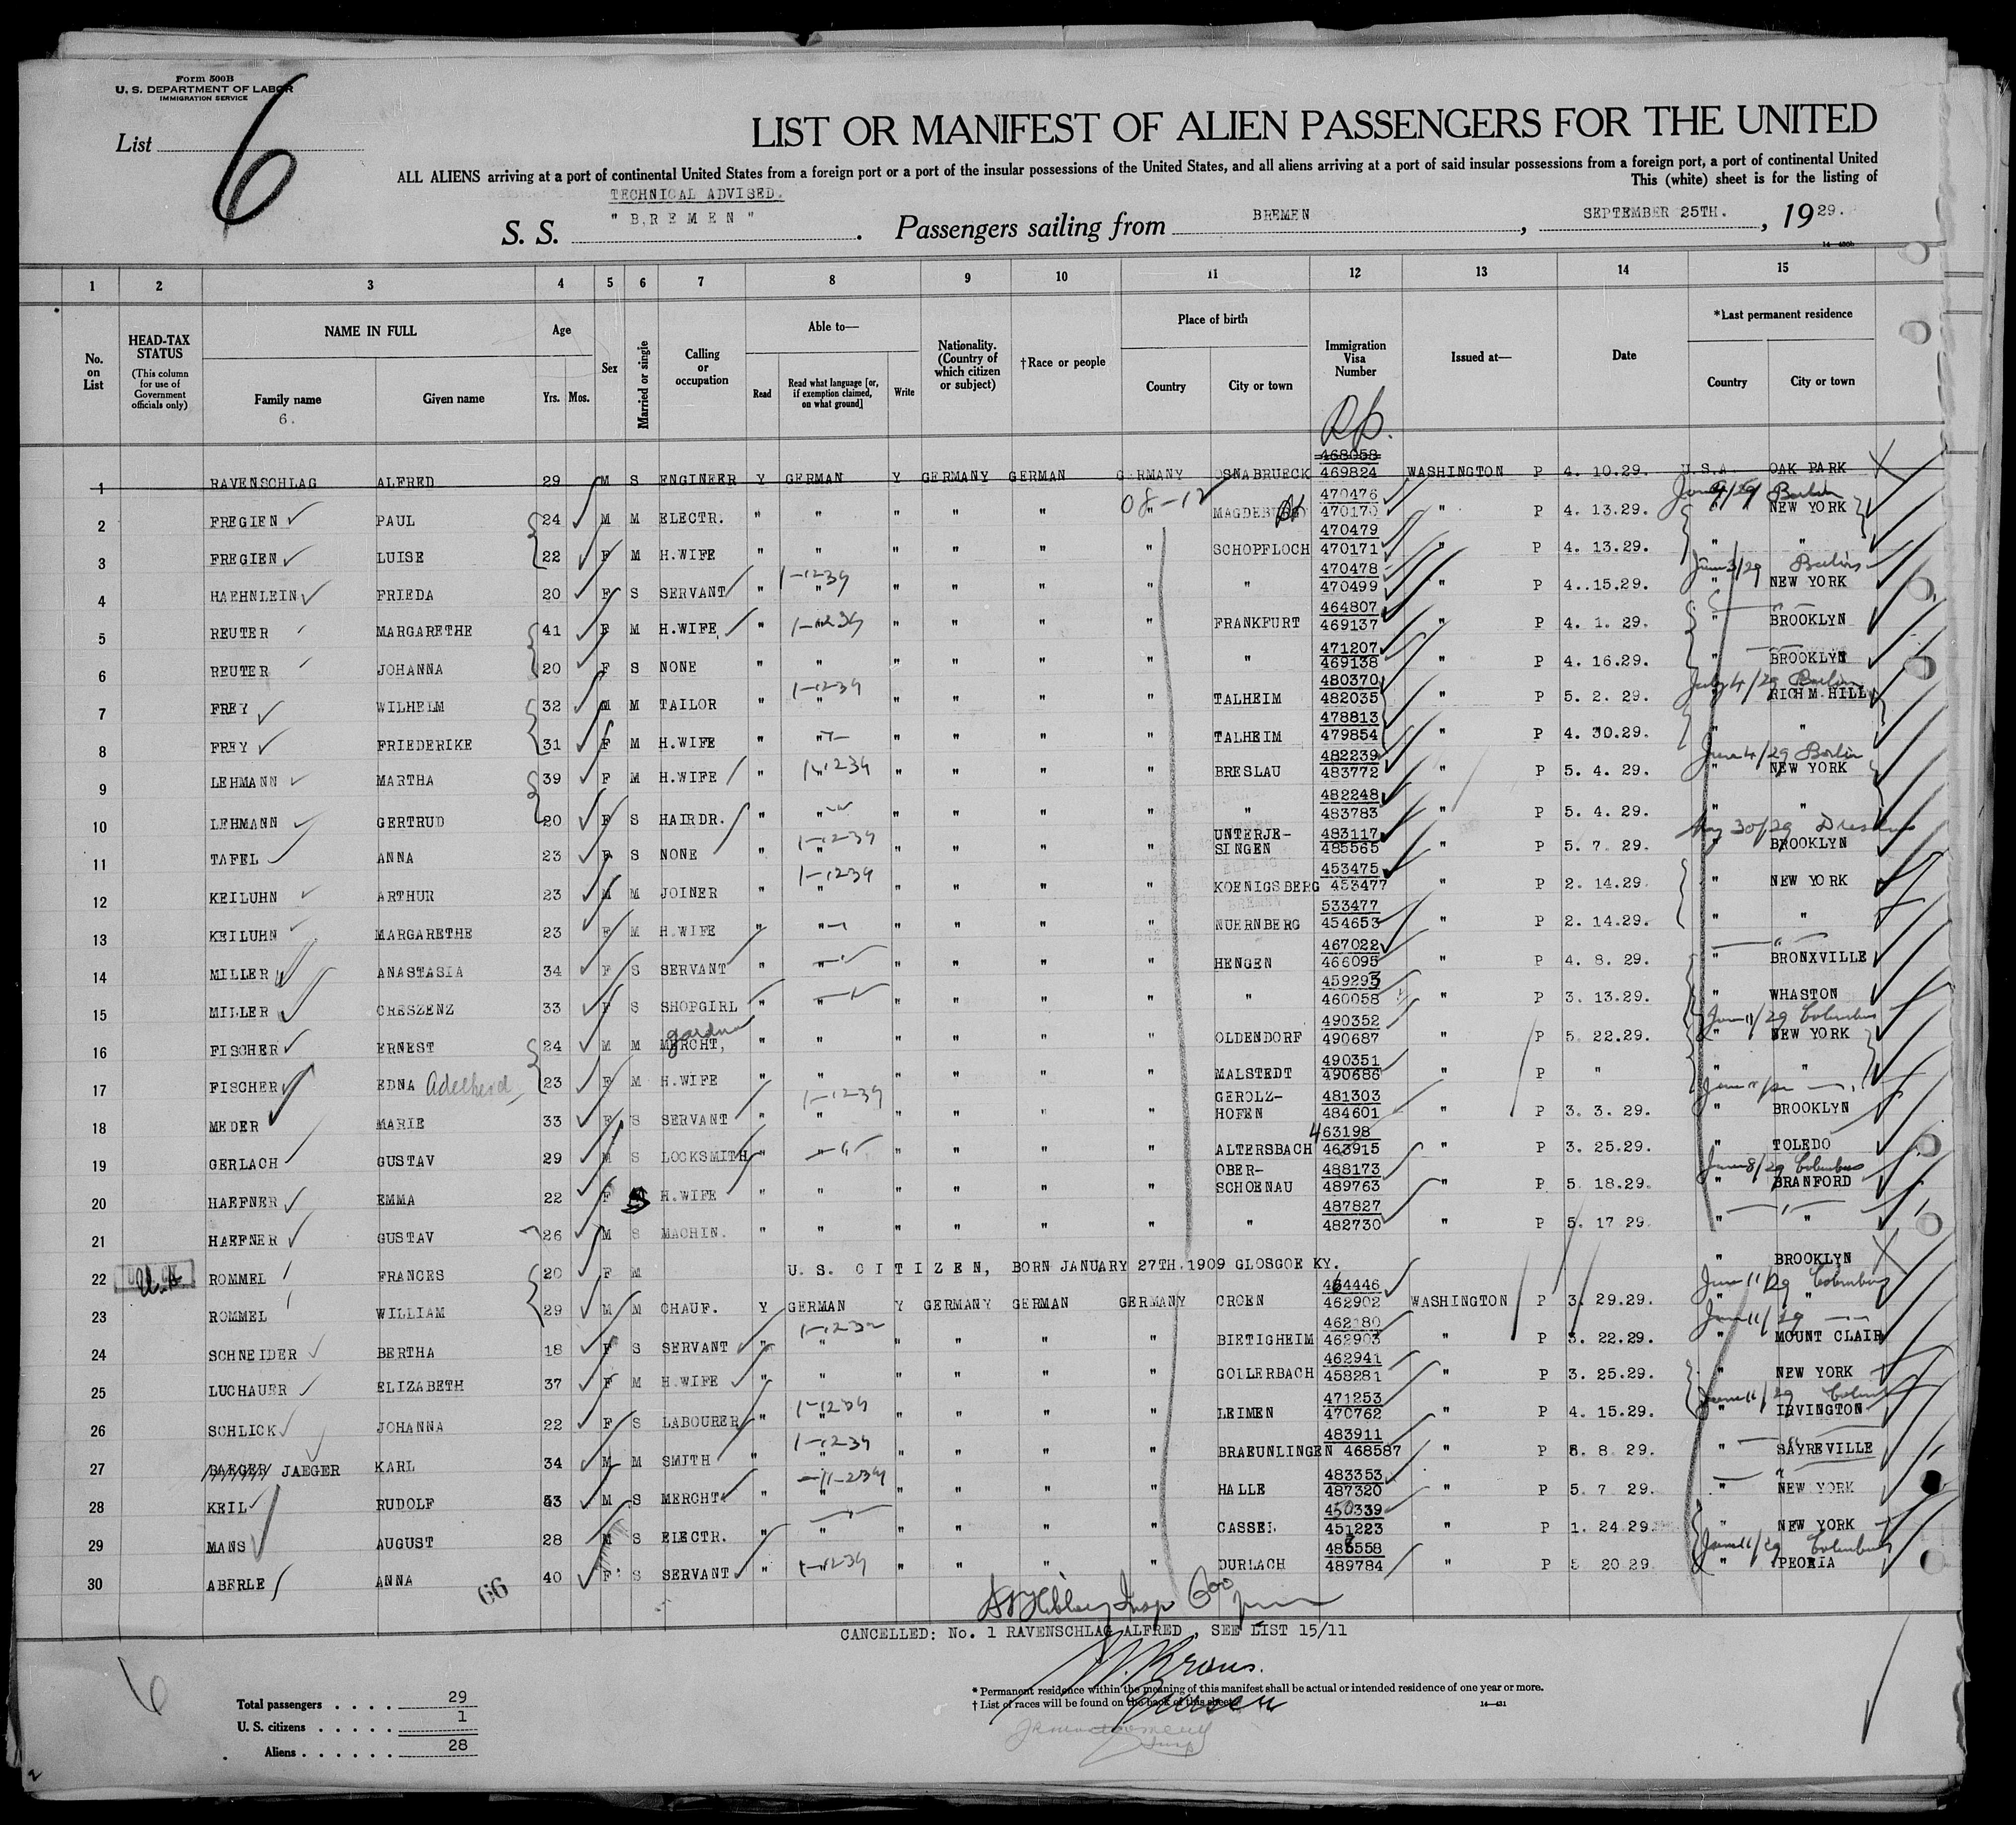 Form 500B
U. S. DEPARTMENT OF LABOR
IMMIGRATION SERVICE
List 6
LIST OR MANIFEST OF ALIEN PASSENGERS FOR THE UNITED
ALL ALIENS arriving at a port of continental United States from a foreign port or a port of the insular possessions of the United States, and all aliens arriving at a port of said insular possessions from a foreign port, a port of continental United
This (white) sheet is for the listing of
TECHNICAL ADVISED.
S. S. " B R E M E N " . Passengers sailing from BREMEN , SEPTEMBER 25TH. , 19 29.
14—430b
1 2 3 4 5 6 7 8 9 10 11 12 13 14 15
No. on List HEAD-TAX STATUS (This column for use of Government officials only) NAME IN FULL Family name Given name Age Yrs. Mos. Sex Married or single Calling or occupation Able to— Read Read what language [or, if exemption claimed, on what ground] Write Nationality. (Country of which citizen or subject) †Race or people Place of birth Country City or town Immigration Visa Number Issued at— Date *Last permanent residence Country City or town
6.
468058
1 RAVENSCHLAG ALFRED 29 M S ENGINEER Y GERMAN Y GERMANY GERMAN GERMANY OSNABRUECK 469824 WASHINGTON P 4. 10.29. U.S.A. OAK PARK
08-12 470476 Berlin
2 FREGIEN PAUL 24 M M ELECTR. " " " " " " MAGDEBURG 470170 " P 4. 13.29. " NEW YORK
470479
3 FREGIEN LUISE 22 F M H.WIFE " " " " " " SCHOPFLOCH 470171 " P 4. 13.29. " "
1-1239 470478 June 3/29 Berlin
4 HAEHNLEIN FRIEDA 20 F S SERVANT " " " " " " " 470499 " P 4. 15.29. " NEW YORK
464807
5 REUTER MARGARETHE 41 F M H.WIFE " " " " " " FRANKFURT 469137 " P 4. 1. 29. " BROOKLYN
471207
6 REUTER JOHANNA 20 F S NONE " " " " " " " 469138 " P 4. 16.29. " BROOKLYN
1-1239 480370 July 4/29 Berlin
7 FREY WILHELM 32 M M TAILOR " " " " " " TALHEIM 482035 " P 5. 2. 29. " RICHM.HILL
478813
8 FREY FRIEDERIKE 31 F M H.WIFE " " " " " " TALHEIM 479854 " P 4. 30.29. " "
482239 June 4/29 Berlin
9 LEHMANN MARTHA 39 F M H.WIFE " " " " " " BRESLAU 483772 " P 5. 4. 29. " NEW YORK
482248
10 LEHMANN GERTRUD 20 F S HAIRDR. " " " " " " " 483783 " P 5. 4. 29. " "
1-1239 UNTERJE- 483117 May 30/29 Dresden
11 TAFEL ANNA 23 F S NONE " " " " " " SINGEN 485565 " P 5. 7. 29. " BROOKLYN
1-1239 453475
12 KEILUHN ARTHUR 23 M M JOINER " " " " " " KOENIGSBERG 453477 " P 2. 14.29. " NEW YORK
533477
13 KEILUHN MARGARETHE 23 F M H.WIFE " " " " " " NUERNBERG 454653 " P 2. 14.29. " "
467022
14 MILLER ANASTASIA 34 F S SERVANT " " " " " " HENGEN 466095 " P 4. 8. 29. " BRONXVILLE
459293
15 MILLER CRESZENZ 33 F S SHOPGIRL " " " " " " " 460058 " P 3. 13.29. " WHASTON
490352 June 11/29 Columbus
16 FISCHER ERNEST 24 M M MERCHT, " " " " " " OLDENDORF 490687 " P 5. 22.29. " NEW YORK
490351
17 FISCHER EDNA Adelheid 23 F M H.WIFE " " " " " " MALSTEDT 490686 " P " " "
1-1239 GEROLZ- 481303
18 MEDER MARIE 33 F S SERVANT " " " " " " HOFEN 484601 " P 3. 3. 29. " BROOKLYN
463198
19 GERLACH GUSTAV 29 M S LOCKSMITH " " " " " " ALTERSBACH 463915 " P 3. 25.29. " TOLEDO
OBER- 488173 June 8/29 Columbus
20 HAEFNER EMMA 22 F S H.WIFE " " " " " " SCHOENAU 489763 " P 5. 18.29. " BRANFORD
487827
21 HAEFNER GUSTAV 26 M S MACHIN. " " " " " " " 482730 " P 5. 17 29. " "
22 ROMMEL FRANCES 20 F M U. S. C I T I Z E N, BORN JANUARY 27TH.1909 GLOSGOE KY. " BROOKLYN
464446 June 11/29 Columbus
23 ROMMEL WILLIAM 29 M M CHAUF. Y GERMAN Y GERMANY GERMAN GERMANY CROEN 462902 WASHINGTON P 3. 29.29. " "
462180 June 11/29
24 SCHNEIDER BERTHA 18 F S SERVANT " " " " " " BIETIGHEIM 462903 " P 3. 22.29. " MOUNT CLAIR
462941
25 LUCHAUER ELIZABETH 37 F M H.WIFE " " " " " " GOLLERBACH 458281 " P 3. 25.29. " NEW YORK
1-1239 471253 June 11/29
26 SCHLICK JOHANNA 22 F S LABOURER " " " " " " LEIMEN 470762 " P 4. 15.29. " IRVINGTON
1-1239 483911
27 BAEGER JAEGER KARL 34 M M SMITH " " " " " " BRAEUNLINGEN 468587 " P 8. 29. " SAYREVILLE
483353
28 KEIL RUDOLF M S MERCHT " " " " " " HALLE 487320 " P 5. 7 29. " NEW YORK
450339
29 MANS AUGUST 28 M S ELECTR. " " " " " " CASSEL 451223 " P 1. 24.29. " NEW YORK
June 11/29 Columbus
30 ABERLE ANNA 40 F S SERVANT " " " " " " DURLACH 489784 " P 5 20 29 " PEORIA
66
CANCELLED: No. 1 RAVENSCHLAG ALFRED , SEE LIST 15/11
6
Total passengers . . . . 29
U. S. citizens . . . . . 1
Aliens . . . . . . 28
* Permanent residence within the meaning of this manifest shall be actual or intended residence of one year or more.
† List of races will be found on the back of this sheet.
14—431